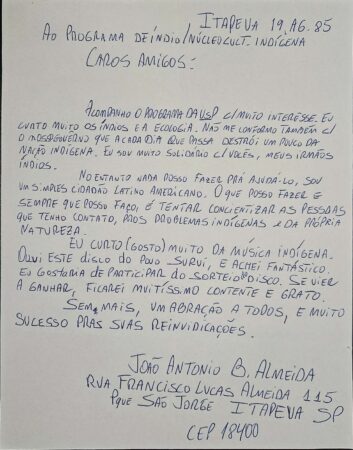 ITAPEVA 19, AG. 85
AO PROGRAMA DE ÍNDIO/NÚCLEO CULT. INDÍGENA
CAROS AMIGOS:
ACOMPANHO O PROGRAMA DA USP C/ MUITO INTERESSE. EU
CURTO MUITO OS ÍNDIOS E A ECOLOGIA. NÃO ME CONFORMO TAMBÉM C/
O NOSSO GOVERNO QUE A CADA DIA QUE PASSA DESTRÓI UM POUCO DA
NAÇÃO INDÍGENA. EU SOU MUITO SOLIDÁRIO C/ VOCÊS, MEUS IRMÃOS
ÍNDIOS.
NO ENTANTO NADA POSSO FAZER PRÁ AJUDÁ-LO, SOU
UM SIMPLES CIDADÃO LATINO AMERICANO. O QUE POSSO FAZER E
SEMPRE QUE POSSO FAÇO, É TENTAR CONCIENTIZAR AS PESSOAS
QUE TENHO CONTATO, PROS PROBLEMAS INDÍGENAS E DA PRÓPRIA
NATUREZA.
EU CURTO (GOSTO) MUITO DA MÚSICA INDÍGENA.
OUVI ESTE DISCO DO POVO SURUÍ, E ACHEI FANTÁSTICO.
EU GOSTARIA DE PARTICIPAR DO SORTEIO DISCO. SE VIER
A GANHAR, FICAREI MUITÍSSIMO CONTENTE E GRATO.
SEM MAIS, UM ABRAÇÃO A TODOS, E MUITO
SUCESSO PRAS SUAS REINVIDICAÇÕES.
JOÃO ANTONIO B. ALMEIDA
RUA FRANCISCO LUCAS ALMEIDA 115
PQUE SÃO JORGE ITAPEVA SP
CEP 18400